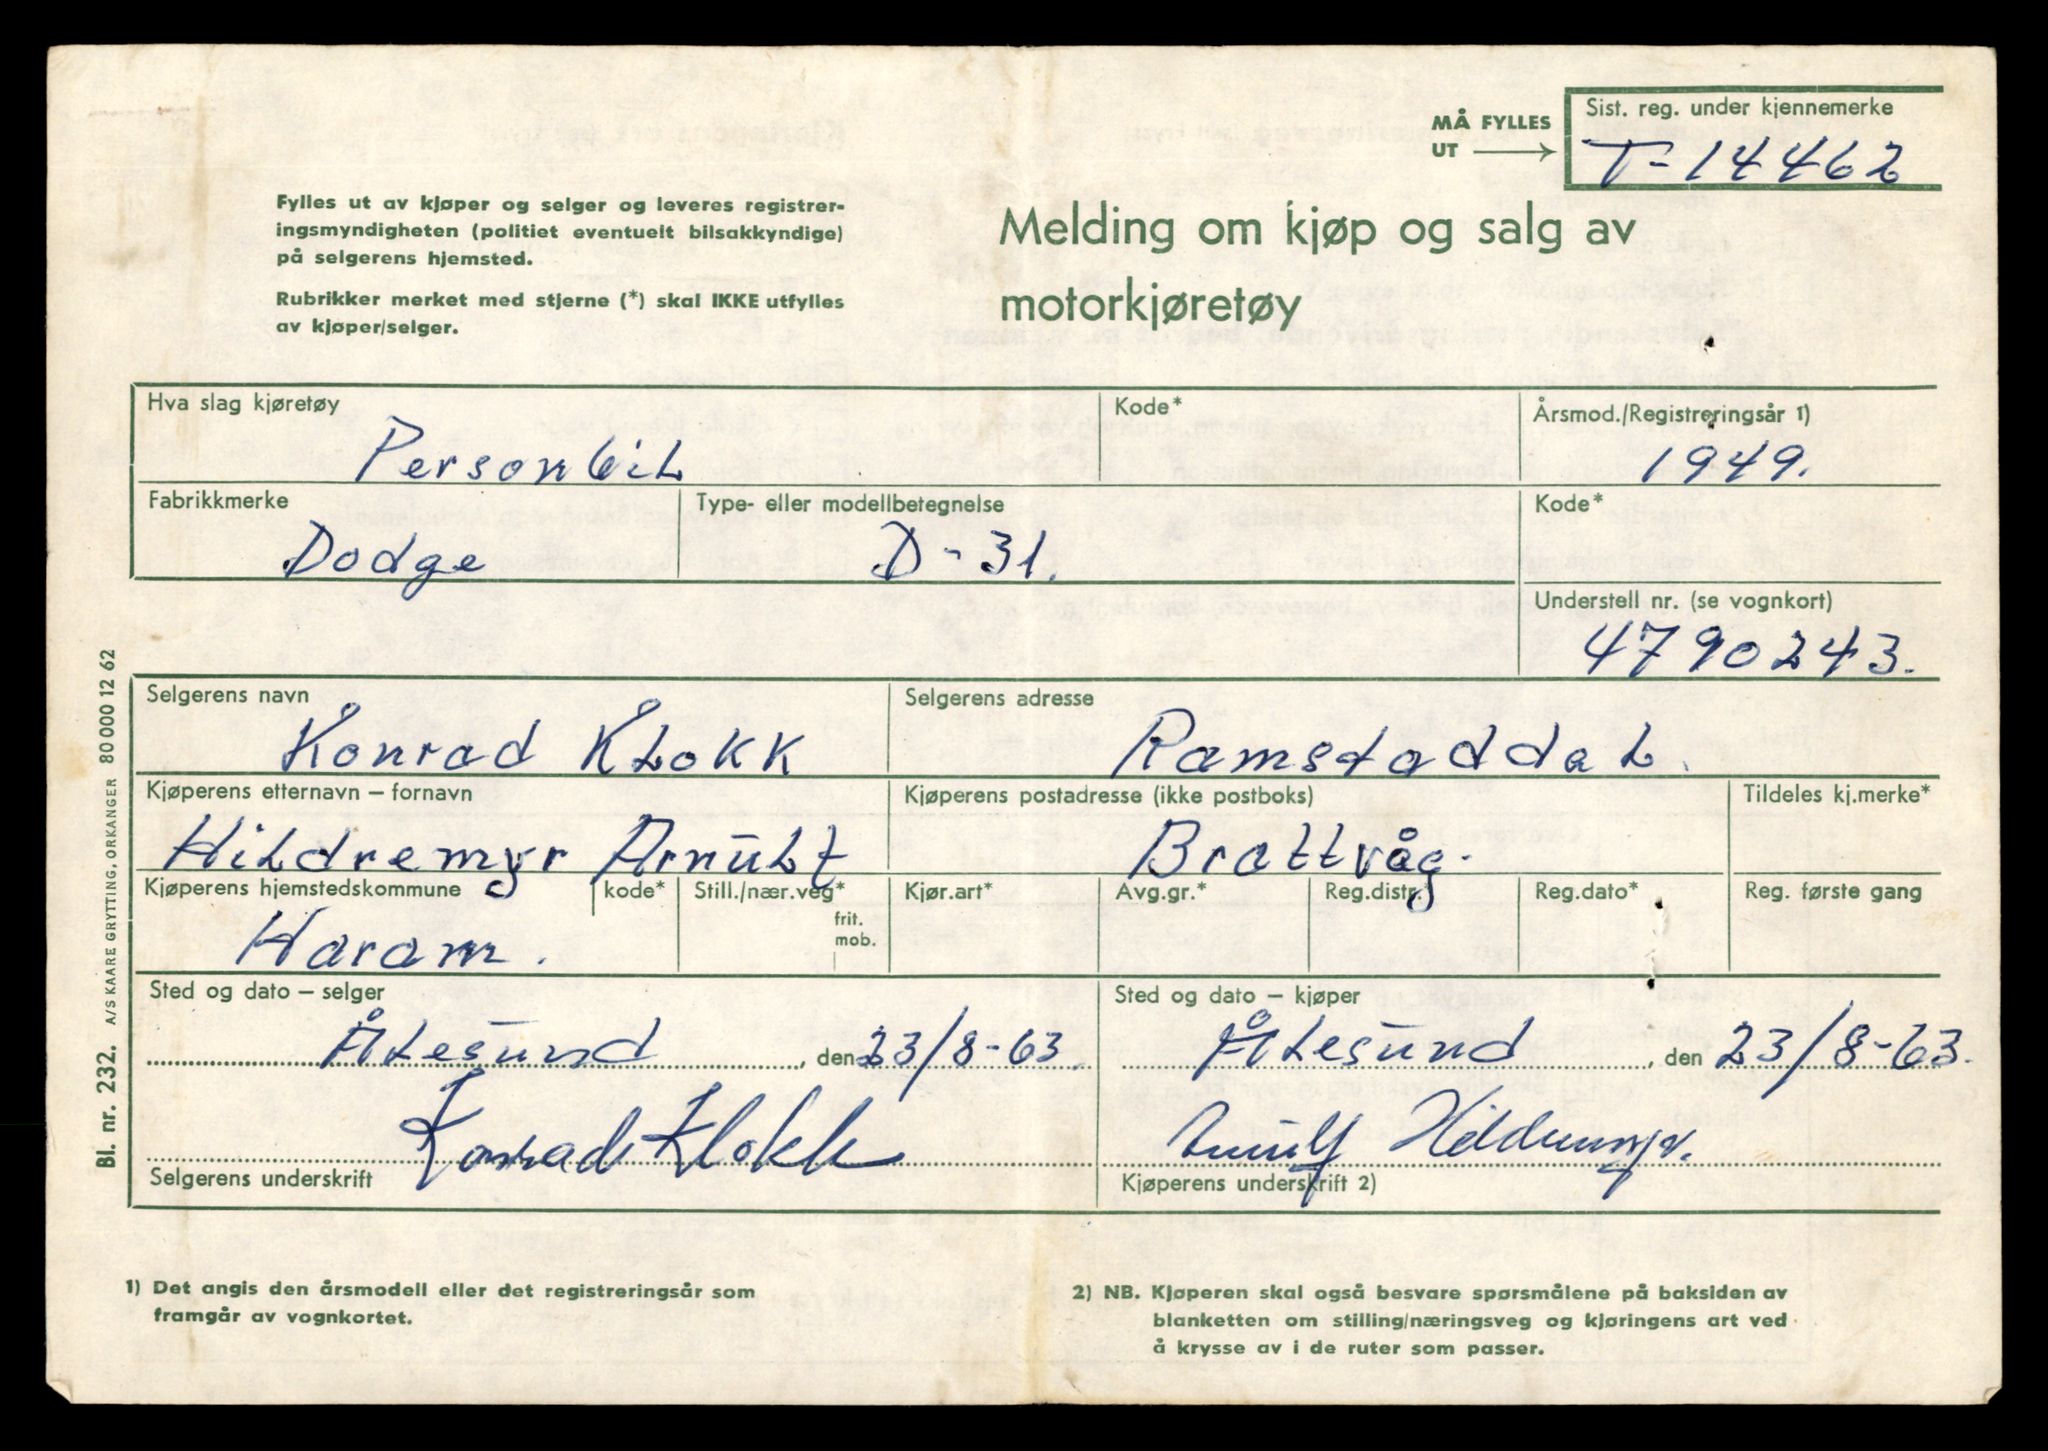 MÅ FYLLES UT
Sist. reg. under kjennemerke
T-14462
Fylles ut av kjøper og selger og leveres registrer-
ingsmyndigheten (politiet eventuelt bilsakkyndige)
på selgerens hjemsted.
Rubrikker merket med stjerne (*) skal IKKE utfylles
av kjøper/selger.
Melding om kjøp og salg av
motorkjøretøy
Hva slag kjøretøy
Personbil
Kode*
Årsmod./Registreringsår 1)
1949.
Fabrikkmerke
Dodge
Type- eller modellbetegnelse
D-31.
Kode*
Understell nr. (se vognkort)
4790243.
Selgerens navn
Konrad Klokk
Selgerens adresse
Ramstaddal.
Kjøperens etternavn – fornavn
Hildremyr Arnulf
Kjøperens postadresse (ikke postboks)
Brattvåg.
Tildeles kj.merke*
Kjøperens hjemstedskommune
Haram.
kode*
Still./nær.veg*
frit.
mob.
Kjør.art*
Avg.gr.*
Reg.distr.*
Reg.dato*
Reg. første gang
Sted og dato – selger
Ålesund, den 23/8-63.
Konrad Klokk
Selgerens underskrift
Sted og dato – kjøper
Ålesund, den 23/8-63.
Arnulf Hildremyr.
Kjøperens underskrift 2)
1) Det angis den årsmodell eller det registreringsår som
framgår av vognkortet.
2) NB. Kjøperen skal også besvare spørsmålene på baksiden av
blanketten om stilling/næringsveg og kjøringens art ved
å krysse av i de ruter som passer.
Bl. nr. 232. A/S KAARE GRYTTING, ORKANGER 80 000 12 62